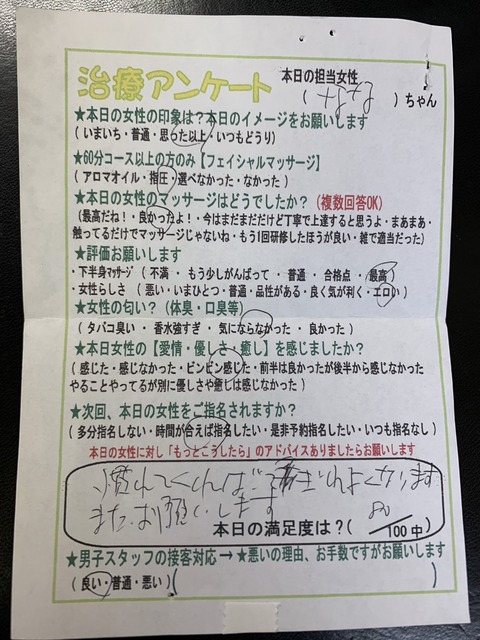 治療アンケート
本日の担当女性
( )ちゃん
★本日の女性の印象は?本日のイメージをお願いします
( いまいち・普通・思った以上・いつもどうり)
★60分コース以上の方のみ【フェイシャルマッサージ】
( アロマオイル・指圧・選べなかった・なかった )
★本日の女性のマッサージはどうでしたか? (複数回答OK)
(最高だね!・良かったよ!・今はまだまだだけど丁寧で上達すると思うよ・まあまあ・
触ってるだけでマッサージじゃないね・もう1回研修したほうが良い・雑で適当だった)
★評価お願いします
・下半身マッサージ ( 不満 ・ もう少しがんばって ・ 普通 ・ 合格点 ・ 最高 )
・女性らしさ ( 悪い・いまひとつ・普通・品性がある・良く気が利く・エロい )
★女性の匂い? (体臭・口臭等)
( タバコ臭い ・ 香水強すぎ ・ 気にならなかった ・ 良かった )
★本日女性の【愛情・優しさ・癒し】を感じましたか?
( 感じた・感じなかった・ビンビン感じた・前半は良かったが後半から感じなかった
やることやってるが別に優しさや癒しは感じなかった )
★次回、本日の女性をご指名されますか?
( 多分指名しない・時間が合えば指名したい・是非予約指名したい・いつも指名なし )
本日の女性に対し「もっとこうしたら」のアドバイスありましたらお願いします
慣れてくれば よくなります
また、お願いします
本日の満足度は? ( 80 /100中 )
★男子スタッフの接客対応 → ★悪いの理由、お手数ですがお願いします
( 良い・普通・悪い ) ( )